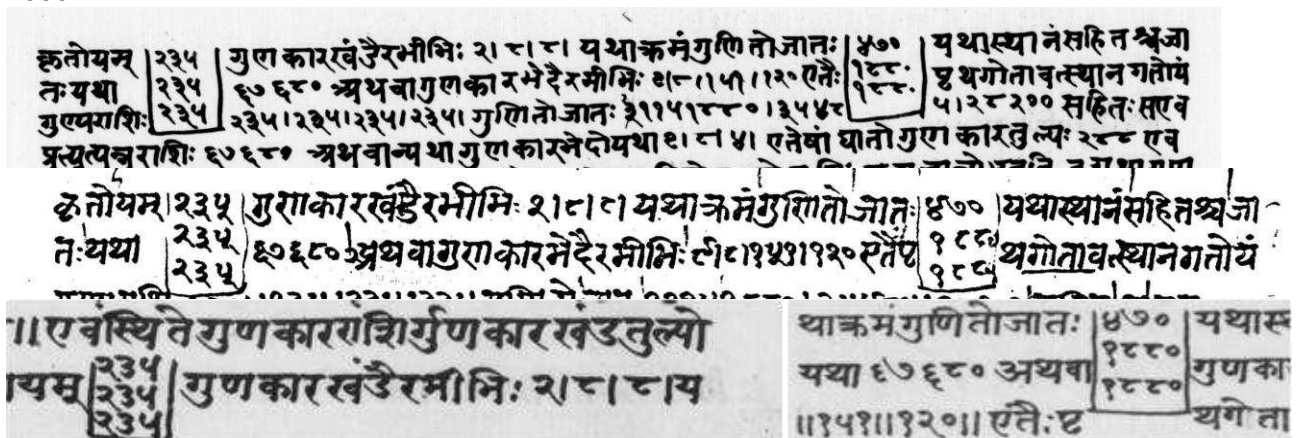 कृतोयम् २३५ गुणकारखंडैरमीभिः २।८।८। यथाक्रमंगुणितोजातः ४७० यथास्थानंसहितश्चजा
तःयथा २३५ ६७६८० अथवागुणकारभेदैरमीभिः ९।८।१५१।१२० एतैः १८८० पृथगोतावत्स्थानगतोयं
गुण्यराशिः २३५ २३५।२३५।२३५।२३५। गुणितोजातः १८८० ५।२८२०० सहितःसएव
राशिः ६७६८० अथवान्यथागुणकारभेदोयथा ९।८।४। एतेषांघातोगुणकारतुल्यः २८८ एव
कृतोयम् २३५ गुणकारखंडैरमीभिः २।८।८। यथाक्रमंगुणितोजातः ४७० यथास्थानंसहितश्चजा
तःयथा २३५ ६७६८० अथवागुणकारभेदैरमीभिः ९।८।१५१।१२० एतैःपृ १८८० थगोतावत्स्थानगतोयं
२३५ १८८०
॥एवंस्थितेगुणकारराशिर्गुणकारखंडतुल्यो
२३५
यम् २३५ गुणकारखंडैरमीभिः २।८।८।य
२३५
थाक्रमंगुणितोजातः ४७० यथास्
यथा ६७६८० अथवा १८८० गुणका
॥१५१॥१२०॥ एतैःपृ १८८० थगोता